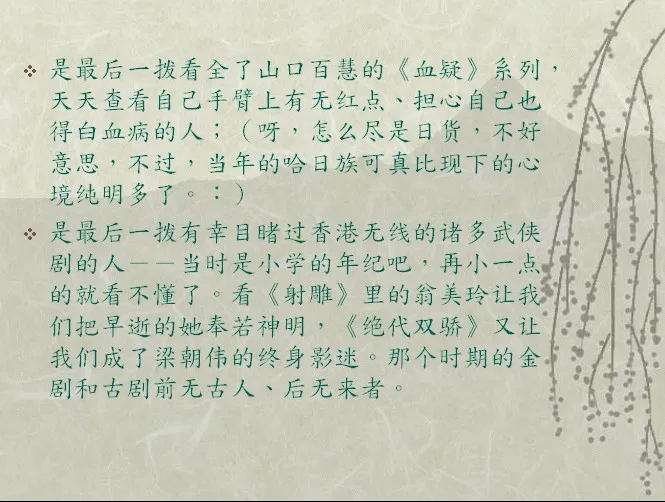 是最后一拨看全了山口百慧的《血疑》系列，
天天查看自己手臂上有无红点、担心自己也
得白血病的人；（呀，怎么尽是日货，不好
意思，不过，当年的哈日族可真比现下的心
境纯明多了。：）
是最后一拨有幸目睹过香港无线的诸多武侠
剧的人——当时是小学的年纪吧，再小一点
的就看不懂了。看《射雕》里的翁美玲让我
们把早逝的她奉若神明，《绝代双骄》又让
我们成了梁朝伟的终身影迷。那个时期的金
剧和古剧前无古人、后无来者。